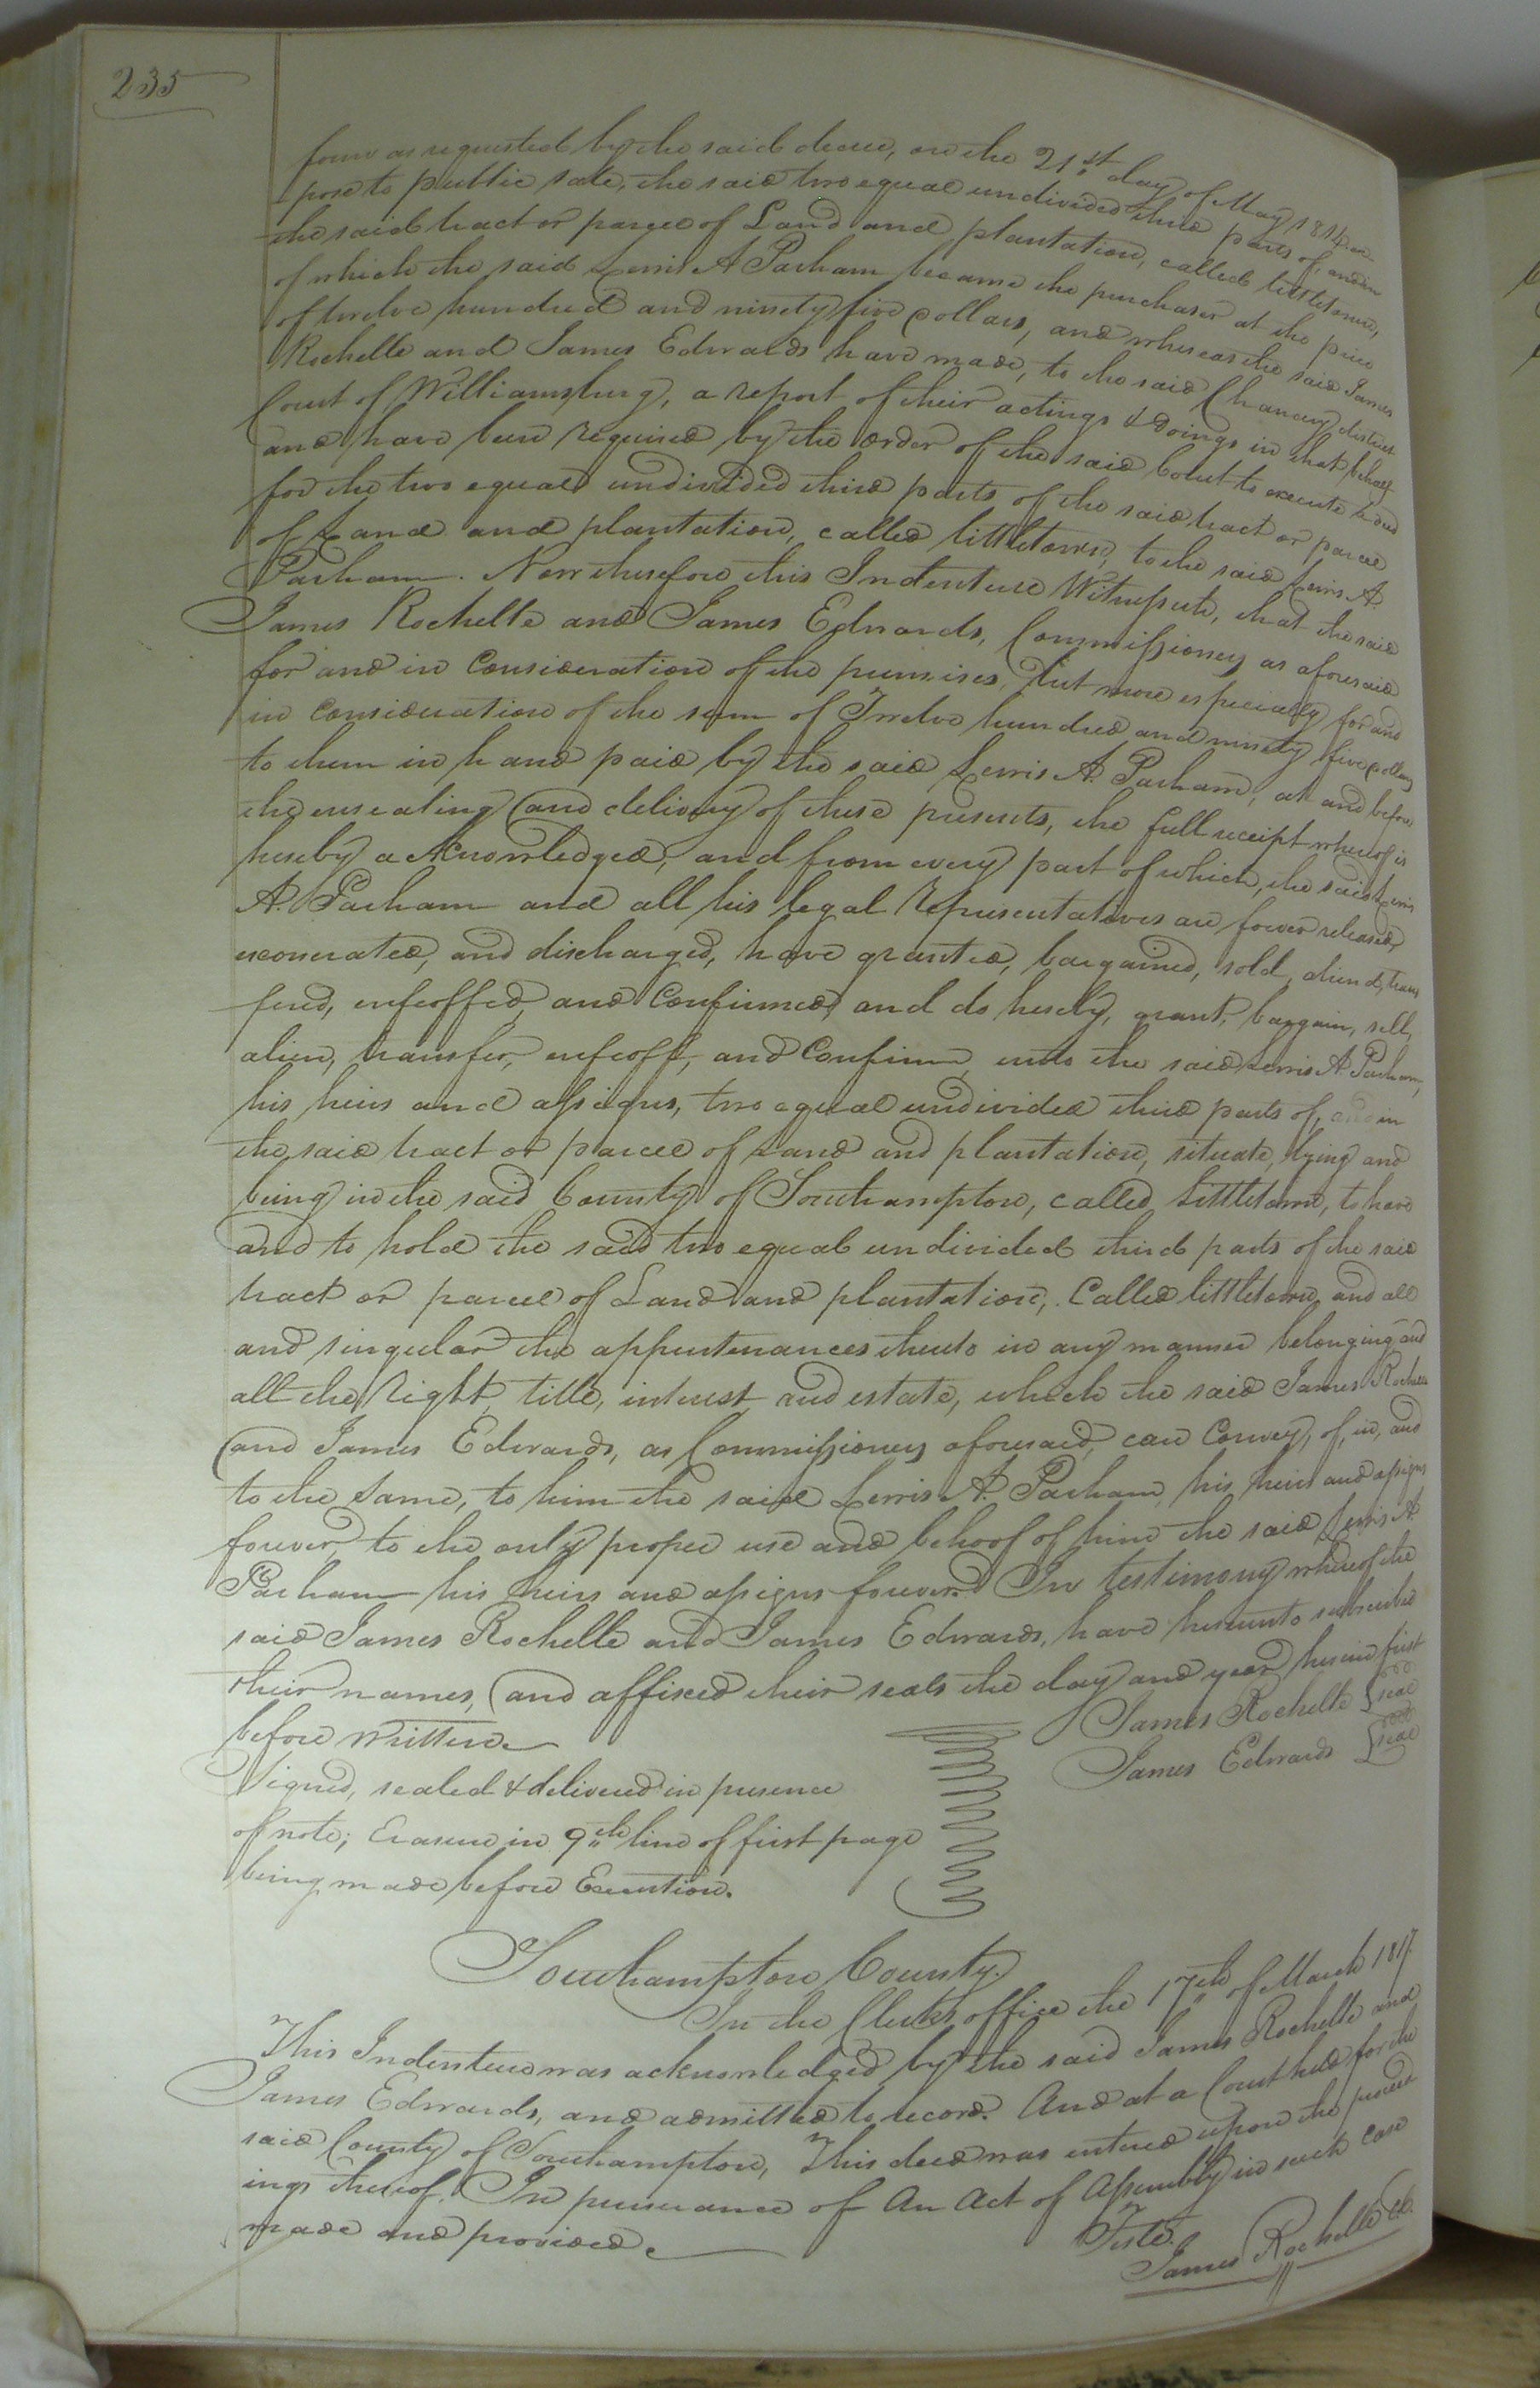 235
form as requested by the said decree, on the 21st day of May 1814, ex
pose to public sale, the said two equal undivided third parts of, and in
the said tract or parcel of Land and plantation, called littletown,
of which the said Lewis A Parham became the purchaser at the price
of twelve hundred and ninety five dollars, and whereas the said James
Rochelle and James Edwards have made, to the said Chancery district
Court of Williamsburg, a report of their actings & doings in that behalf
and have been required by the order of the said Court to execute a deed
for the two equal undivided third parts of the said tract or parcel
of Land and plantation, called littletown, to the said Lewis A.
Parham. Now therefore this Indenture Witnesseth, that the said
James Rochelle and James Edwards, Commissioners as aforesaid
for and in Consideration of the premises, but more especially for and
in consideration of the sum of Twelve hundred and ninety five dollars
to them in hand paid by the said Lewis A. Parham, at and before
the ensealing and delivery of these presents, the full receipt whereof is
hereby acknowledged, and from every part of which, the said Lewis
A. Parham and all his legal Representatives are forever released,
exonerated, and discharged, have granted, bargained, sold, aliened, trans
fered, enfeoffed, and Confirmed, and do hereby, grant, bargain, sell,
alien, transfer, enfeoff, and Confirm, unto the said Lewis A. Parham,
his heirs and assigns, two equal undivided third parts of, and in
the said tract or parcel of Land and plantation, situate, lying and
being in the said County of Southampton, called Littletown, to have
and to hold the said two equal undivided third parts of the said
tract or parcel of Land and plantation, Called littletown, and all
and singular the appurtenances thereto in any manner belonging and
all the right, title, interest and estate, which the said James Rochelle
and James Edwards, as Commissioners aforesaid, can Convey, of, in, and
to the same, to him the said Lewis A. Parham, his heirs and assigns
forever, to the only proper use and behoof of him the said Lewis A
Parham his heirs and assigns forever. In testimony whereof the
said James Rochelle and James Edwards, have hereunto subscribed
their names, and affixed their seals the day and year herein first
before written
James Rochelle {seal
James Edwards {seal
Signed, sealed & delivered in presence
of note; Erasure in 9th line of first page
being made before Execution.
Southampton County.
In the Clerks office the 17th of March 1817.
This Indenture was acknowledged by the said James Rochelle and
James Edwards, and admitted to record. And at a Court held for the
said County of Southampton, This deed was entered upon the proceed
ings thereof. In pursuance of An Act of Assembly in such case
made and provided.
Teste.
James Rochelle Ck.